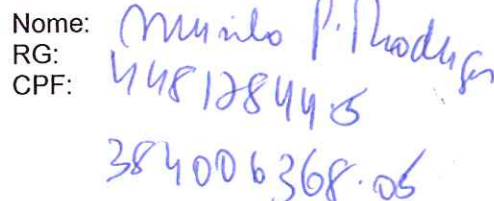 Nome: Murilo P. Rodrigues
RG: 44812844-5
CPF:
384006368-05